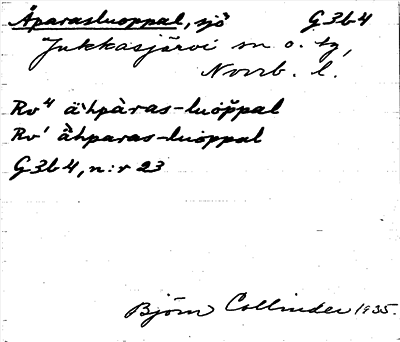 Åparasluoppal, sjö G3b4
Jukkasjärvi sn o. tg,
Norrb. l.
Rv⁴ ä̀hpàras-luòppal
Rv' ä̀hparas-luòppal
G3b4, n:r 23
Björn Collinder 1935.